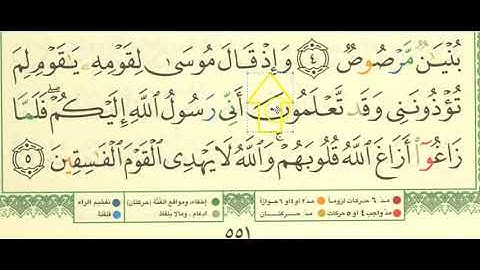 بُنْيَـٰنٌ مَّرْصُوصٌ ٤ وَإِذْ قَالَ مُوسَىٰ لِقَوْمِهِۦ يَـٰقَوْمِ لِمَ
تُؤْذُونَنِى وَقَد تَّعْلَمُونَ أَنِّى رَسُولُ ٱللَّهِ إِلَيْكُمْ ۖ فَلَمَّا
زَاغُوٓا۟ أَزَاغَ ٱللَّهُ قُلُوبَهُمْ ۚ وَٱللَّهُ لَا يَهْدِى ٱلْقَوْمَ ٱلْفَـٰسِقِينَ ٥
مدّ ٦ حركات لزوماً مدّ ٢ أو ٤ أو ٦ جوازاً إخفاء، ومواقع الغُنَّة (حركتان) تفخيم الراء
مدّ واجب ٤ أو ٥ حركات مدّ حركتان إدغام، وما لا يُلفظ قلقلة
٥٥١